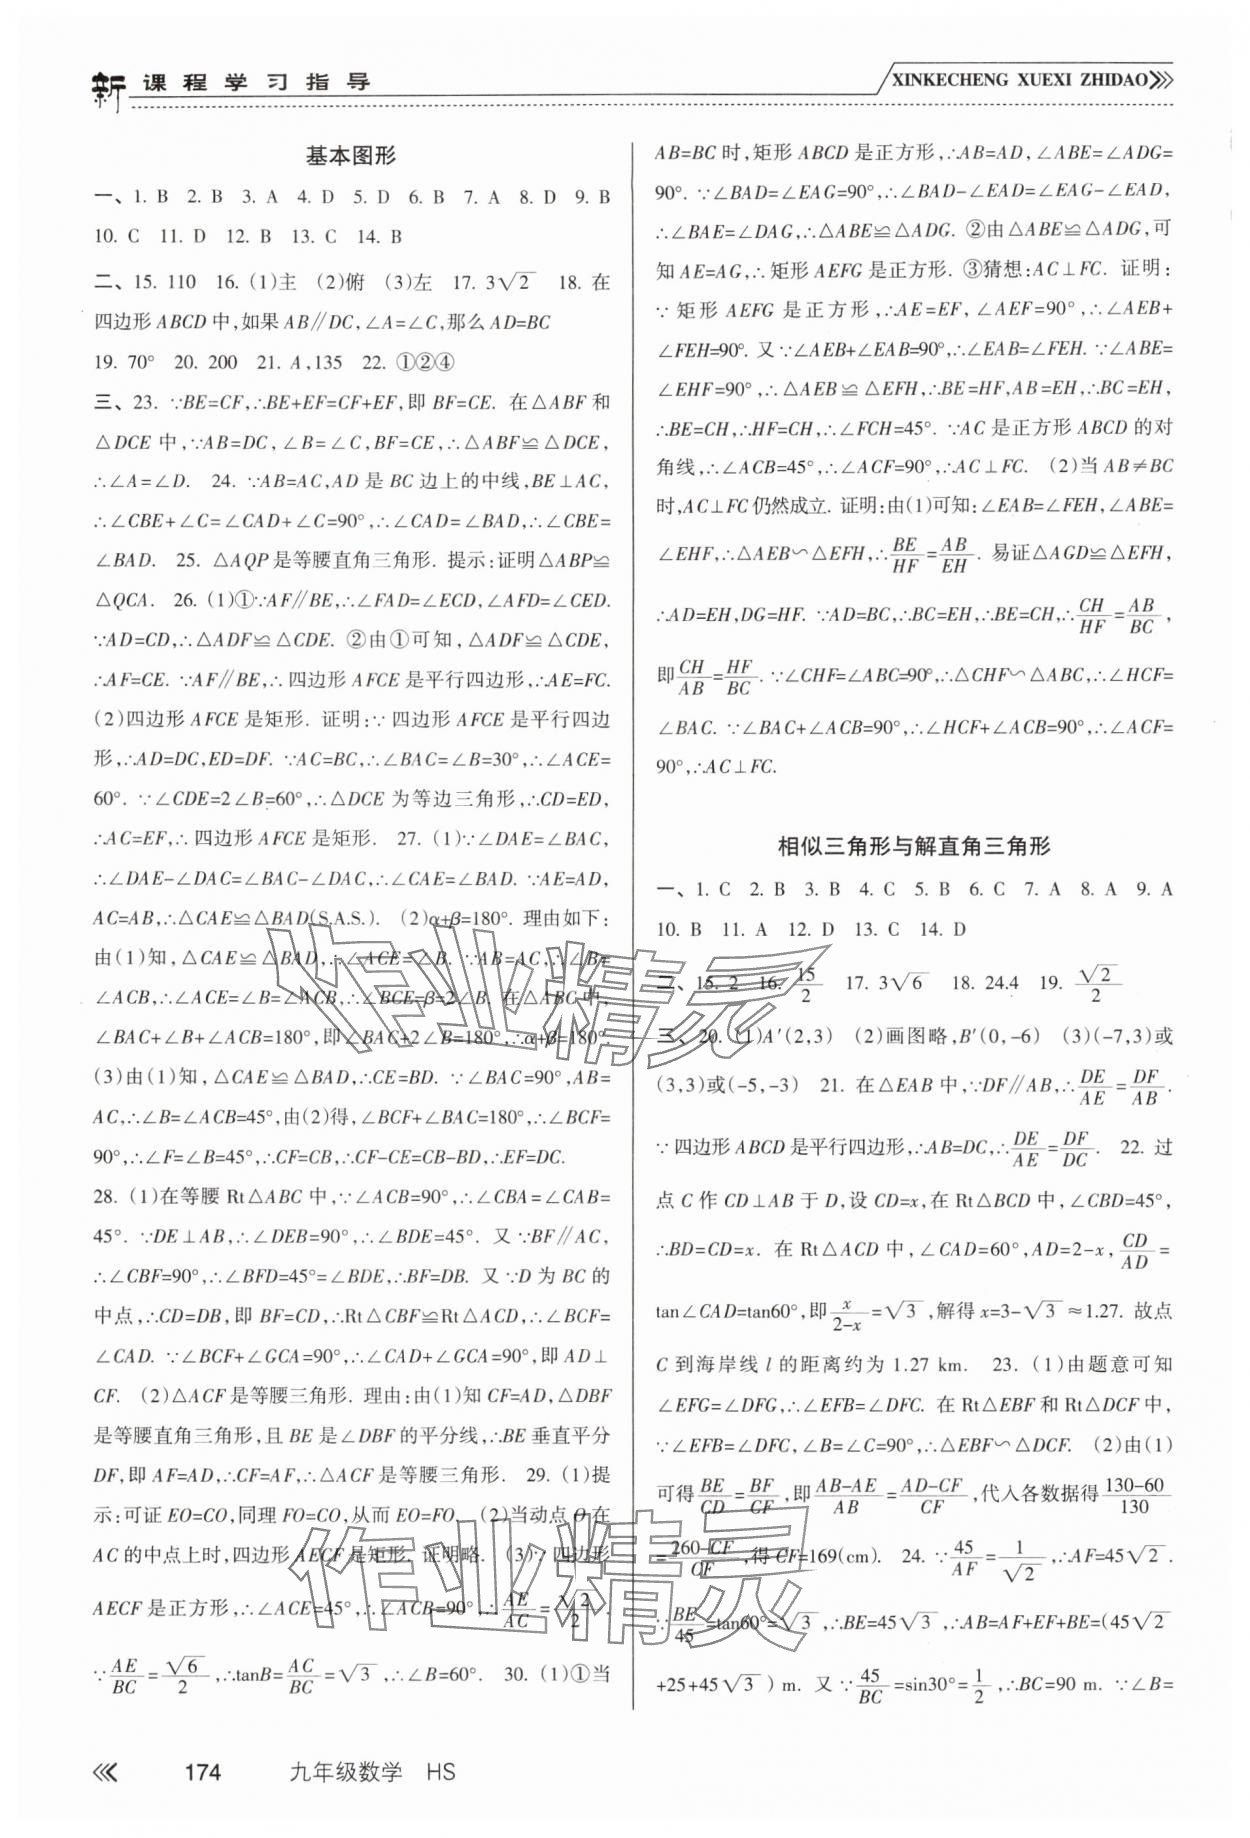 新课程学习指导
XINKECHENG XUEXI ZHIDAO
基本图形
一、1. B 2. B 3. A 4. D 5. D 6. B 7. A 8. D 9. B
10. C 11. D 12. B 13. C 14. B
二、15. 110 16. (1)主 (2)俯 (3)左 17. 3√2 18. 在
四边形ABCD中,如果AB∥DC,∠A=∠C,那么AD=BC
19. 70° 20. 200 21. A,135 22. ①②④
三、23. ∵BE=CF,∴BE+EF=CF+EF,即BF=CE. 在△ABF和
△DCE中,∵AB=DC,∠B=∠C,BF=CE,∴△ABF≌△DCE,
∴∠A=∠D. 24. ∵AB=AC,AD是BC边上的中线,BE⊥AC,
∴∠CBE+∠C=∠CAD+∠C=90°,∴∠CAD=∠BAD,∴∠CBE=
∠BAD. 25. △AQP是等腰直角三角形. 提示:证明△ABP≌
△QCA. 26. (1)①∵AF∥BE,∴∠FAD=∠ECD,∠AFD=∠CED.
∵AD=CD,∴△ADF≌△CDE. ②由①可知,△ADF≌△CDE,
∴AF=CE. ∵AF∥BE,∴四边形AFCE是平行四边形,∴AE=FC.
(2)四边形AFCE是矩形. 证明:∵四边形AFCE是平行四边
形,∴AD=DC,ED=DF. ∵AC=BC,∴∠BAC=∠B=30°,∴∠ACE=
60°. ∵∠CDE=2∠B=60°,∴△DCE为等边三角形,∴CD=ED,
∴AC=EF,∴四边形AFCE是矩形. 27. (1)∵∠DAE=∠BAC,
∴∠DAE-∠DAC=∠BAC-∠DAC,∴∠CAE=∠BAD. ∵AE=AD,
AC=AB,∴△CAE≌△BAD(S.A.S.). (2)α+β=180°. 理由如下:
由(1)知,△CAE≌△BAD,∴∠ACE=∠B. ∵AB=AC,∴∠B=
∠ACB,∴∠ACE=∠B=∠ACB,∴∠BCE=β=2∠B. 在△ABC中,
∠BAC+∠B+∠ACB=180°,即∠BAC+2∠B=180°,∴α+β=180°.
(3)由(1)知,△CAE≌△BAD,∴CE=BD. ∵∠BAC=90°,AB=
AC,∴∠B=∠ACB=45°,由(2)得,∠BCF+∠BAC=180°,∴∠BCF=
90°,∴∠F=∠B=45°,∴CF=CB,∴CF-CE=CB-BD,∴EF=DC.
28. (1)在等腰Rt△ABC中,∵∠ACB=90°,∴∠CBA=∠CAB=
45°. ∵DE⊥AB,∴∠DEB=90°,∴∠BDE=45°. 又∵BF∥AC,
∴∠CBF=90°,∴∠BFD=45°=∠BDE,∴BF=DB. 又∵D为BC的
中点,∴CD=DB,即BF=CD,∴Rt△CBF≌Rt△ACD,∴∠BCF=
∠CAD. ∵∠BCF+∠GCA=90°,∴∠CAD+∠GCA=90°,即AD⊥
CF. (2)△ACF是等腰三角形. 理由:由(1)知CF=AD,△DBF
是等腰直角三角形,且BE是∠DBF的平分线,∴BE垂直平分
DF,即AF=AD,∴CF=AF,∴△ACF是等腰三角形. 29. (1)提
示:可证EO=CO,同理FO=CO,从而EO=FO. (2)当动点O在
AC的中点上时,四边形AECF是矩形. 证明略. (3)∵四边形
AECF是正方形,∴∠ACE=45°,∴∠ACB=90°,∴AE/AC=√2/2.
∵AE/BC=√6/2,∴tanB=AC/BC=√3,∴∠B=60°. 30. (1)①当
AB=BC时,矩形ABCD是正方形,∴AB=AD,∠ABE=∠ADG=
90°. ∵∠BAD=∠EAG=90°,∴∠BAD-∠EAD=∠EAG-∠EAD,
∴∠BAE=∠DAG,∴△ABE≌△ADG. ②由△ABE≌△ADG,可
知AE=AG,∴矩形AEFG是正方形. ③猜想:AC⊥FC. 证明:
∵矩形AEFG是正方形,∴AE=EF,∠AEF=90°,∴∠AEB+
∠FEH=90°. 又∵∠AEB+∠EAB=90°,∴∠EAB=∠FEH. ∵∠ABE=
∠EHF=90°,∴△AEB≌△EFH,∴BE=HF,AB=EH,∴BC=EH,
∴BE=CH,∴HF=CH,∴∠FCH=45°. ∵AC是正方形ABCD的对
角线,∴∠ACB=45°,∴∠ACF=90°,∴AC⊥FC. (2)当AB≠BC
时,AC⊥FC仍然成立. 证明:由(1)可知:∠EAB=∠FEH,∠ABE=
∠EHF,∴△AEB∽△EFH,∴BE/HF=AB/EH. 易证△AGD≌△EFH,
∴AD=EH,DG=HF. ∵AD=BC,∴BC=EH,∴BE=CH,∴CH/HF=AB/BC,
即CH/AB=HF/BC. ∵∠CHF=∠ABC=90°,∴△CHF∽△ABC,∴∠HCF=
∠BAC. ∵∠BAC+∠ACB=90°,∴∠HCF+∠ACB=90°,∴∠ACF=
90°,∴AC⊥FC.
相似三角形与解直角三角形
一、1. C 2. B 3. B 4. C 5. B 6. C 7. A 8. A 9. A
10. B 11. A 12. D 13. C 14. D
二、15. 2 16. 15/2 17. 3√6 18. 24.4 19. √2/2
三、20. (1)A′(2,3) (2)画图略,B′(0,-6) (3)(-7,3)或
(3,3)或(-5,-3) 21. 在△EAB中,∵DF∥AB,∴DE/AE=DF/AB.
∵四边形ABCD是平行四边形,∴AB=DC,∴DE/AE=DF/DC. 22. 过
点C作CD⊥AB于D,设CD=x,在Rt△BCD中,∠CBD=45°,
∴BD=CD=x. 在Rt△ACD中,∠CAD=60°,AD=2-x,CD/AD=
tan∠CAD=tan60°,即x/(2-x)=√3,解得x=3-√3≈1.27. 故点
C到海岸线l的距离约为1.27 km. 23. (1)由题意可知
∠EFG=∠DFG,∴∠EFB=∠DFC. 在Rt△EBF和Rt△DCF中,
∵∠EFB=∠DFC,∠B=∠C=90°,∴△EBF∽△DCF. (2)由(1)
可得BE/CD=BF/CF,即(AB-AE)/AB=(AD-CF)/CF,代入各数据得(130-60)/130
=(260-CF)/CF,得CF=169(cm). 24. ∵45/AF=1/√2,∴AF=45√2.
∵BE/45=tan60°=√3,∴BE=45√3,∴AB=AF+EF+BE=(45√2
+25+45√3) m. 又∵45/BC=sin30°=1/2,∴BC=90 m. ∵∠B=
作业精灵
作业精灵
174 九年级数学 HS